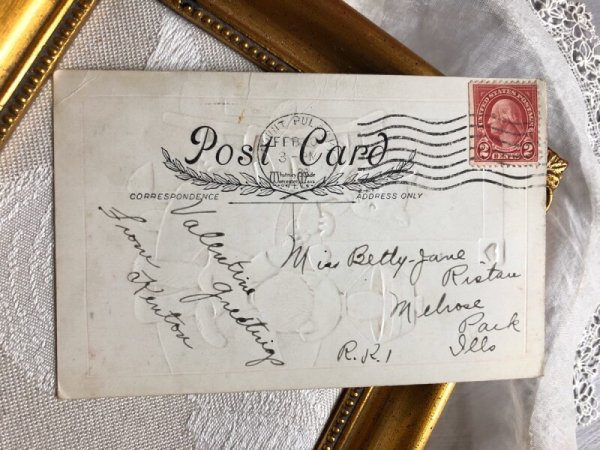 UNITED STATES POSTAGE
2 CENTS 2
FEB
3
Post Card
CORRESPONDENCE
ADDRESS ONLY
Valentine
greetings
from
Kenton
Miss Betty-Jane
Ristau
Melrose
Park
Ills
R.R.1